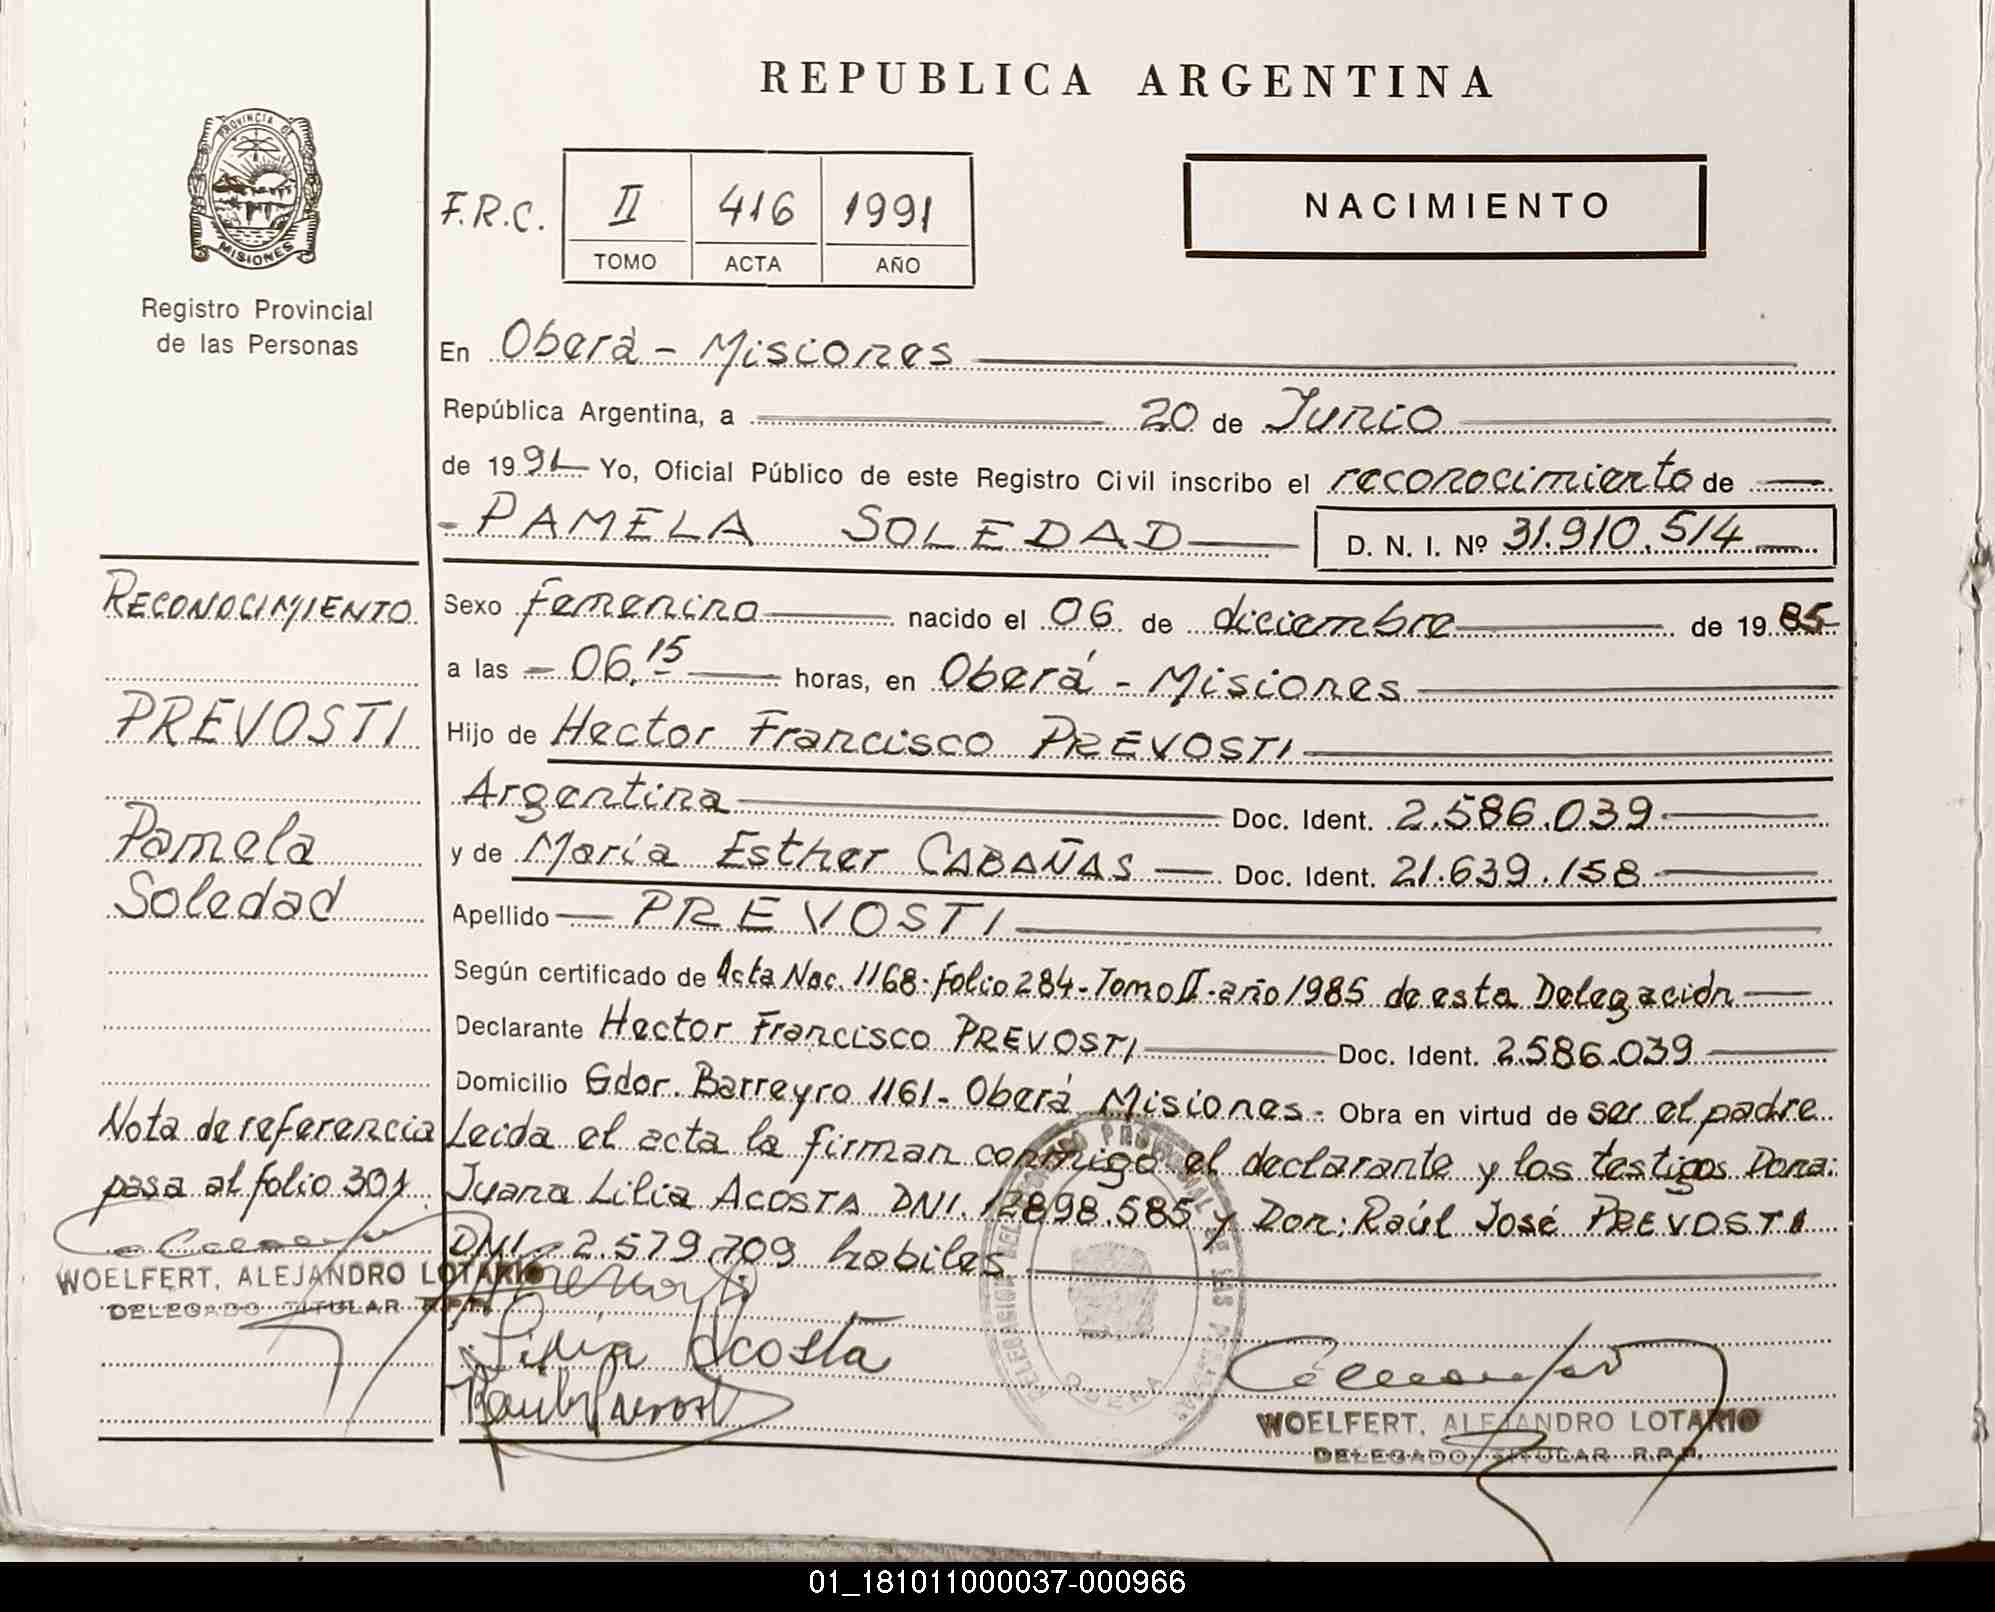 REPUBLICA ARGENTINA
PROVINCIA DE
MISIONES
Registro Provincial
de las Personas
F.R.C. II 416 1991
TOMO ACTA AÑO
NACIMIENTO
En Oberá - Misiones
República Argentina, a 20 de Junio
de 1991 Yo, Oficial Público de este Registro Civil inscribo el reconocimiento de
- PAMELA SOLEDAD D. N. I. Nº 31.910.514
RECONOCIMIENTO
PREVOSTI
Pamela
Soledad
Sexo femenino nacido el 06 de diciembre de 1985
a las - 06.15 horas, en Oberá - Misiones
Hijo de Hector Francisco PREVOSTI
Argentina Doc. Ident. 2.586.039
y de María Esther CABAÑAS Doc. Ident. 21.639.158
Apellido PREVOSTI
Según certificado de Acta Nac. 1168-folio 284-Tomo II-año 1985 de esta Delegación
Declarante Hector Francisco PREVOSTI Doc. Ident. 2.586.039
Domicilio Gdor. Barreyro 1161- Oberá Misiones- Obra en virtud de ser el padre
Leida el acta la firman conmigo el declarante y los testigos Dona:
Juana Lilia ACOSTA DNI. 12898.585 y Don: Raúl José PREVOSTI
DNI. 2.579.709 habiles
Nota de referencia
pasa al folio 301
WOELFERT, ALEJANDRO LOTARIO
DELEGADO TITULAR R.P.P.
Lilia Acosta
Raul Prevosti
OBERA
WOELFERT, ALEJANDRO LOTARIO
DELEGADO TITULAR R.P.P.
01_181011000037-000966